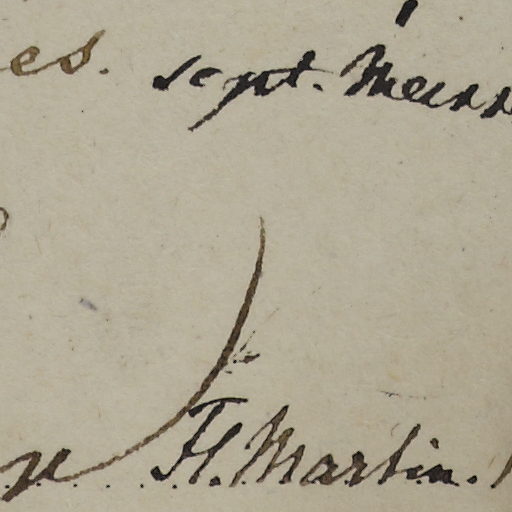 es. sept. Meuss
H. Martin.